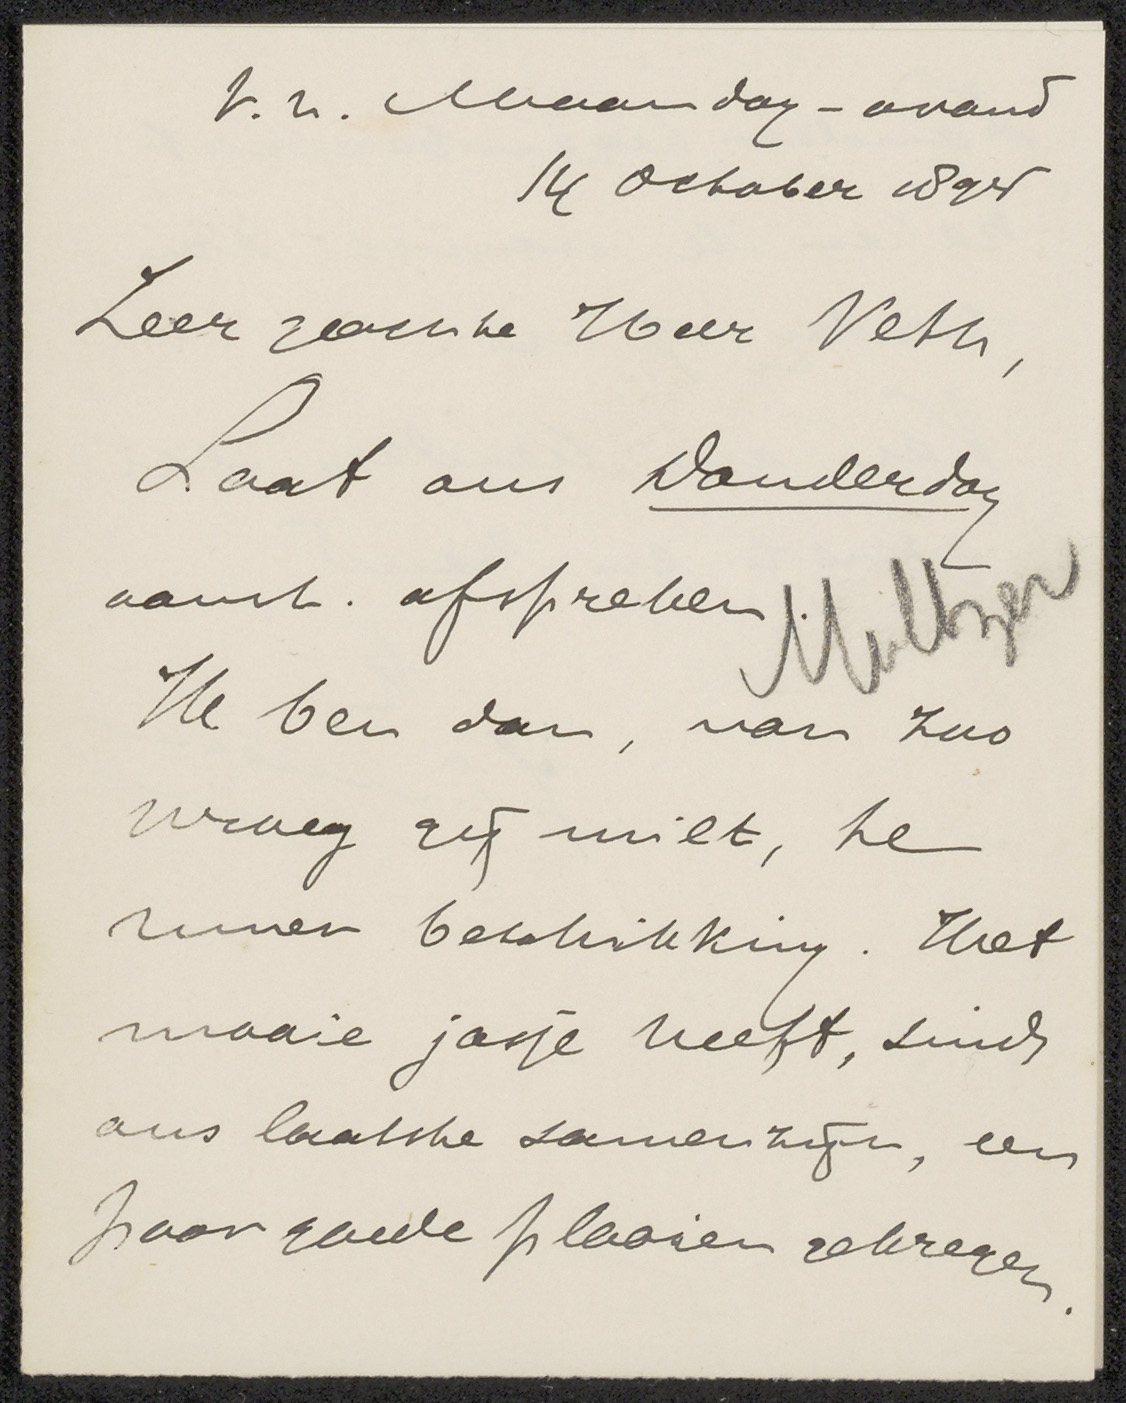 v. h. Maandag-avond
14 October 1895
Zeer geachte Heer Veth,
Laat ons Donderdag
aanst. afspreken.
Moltzer
Ik ben dan, van zoo
vroeg gij wilt, te
uwer beschikking. Het
mooie jasje heeft, sinds
ons laatste samenzijn, een
paar goede plooien gekregen.